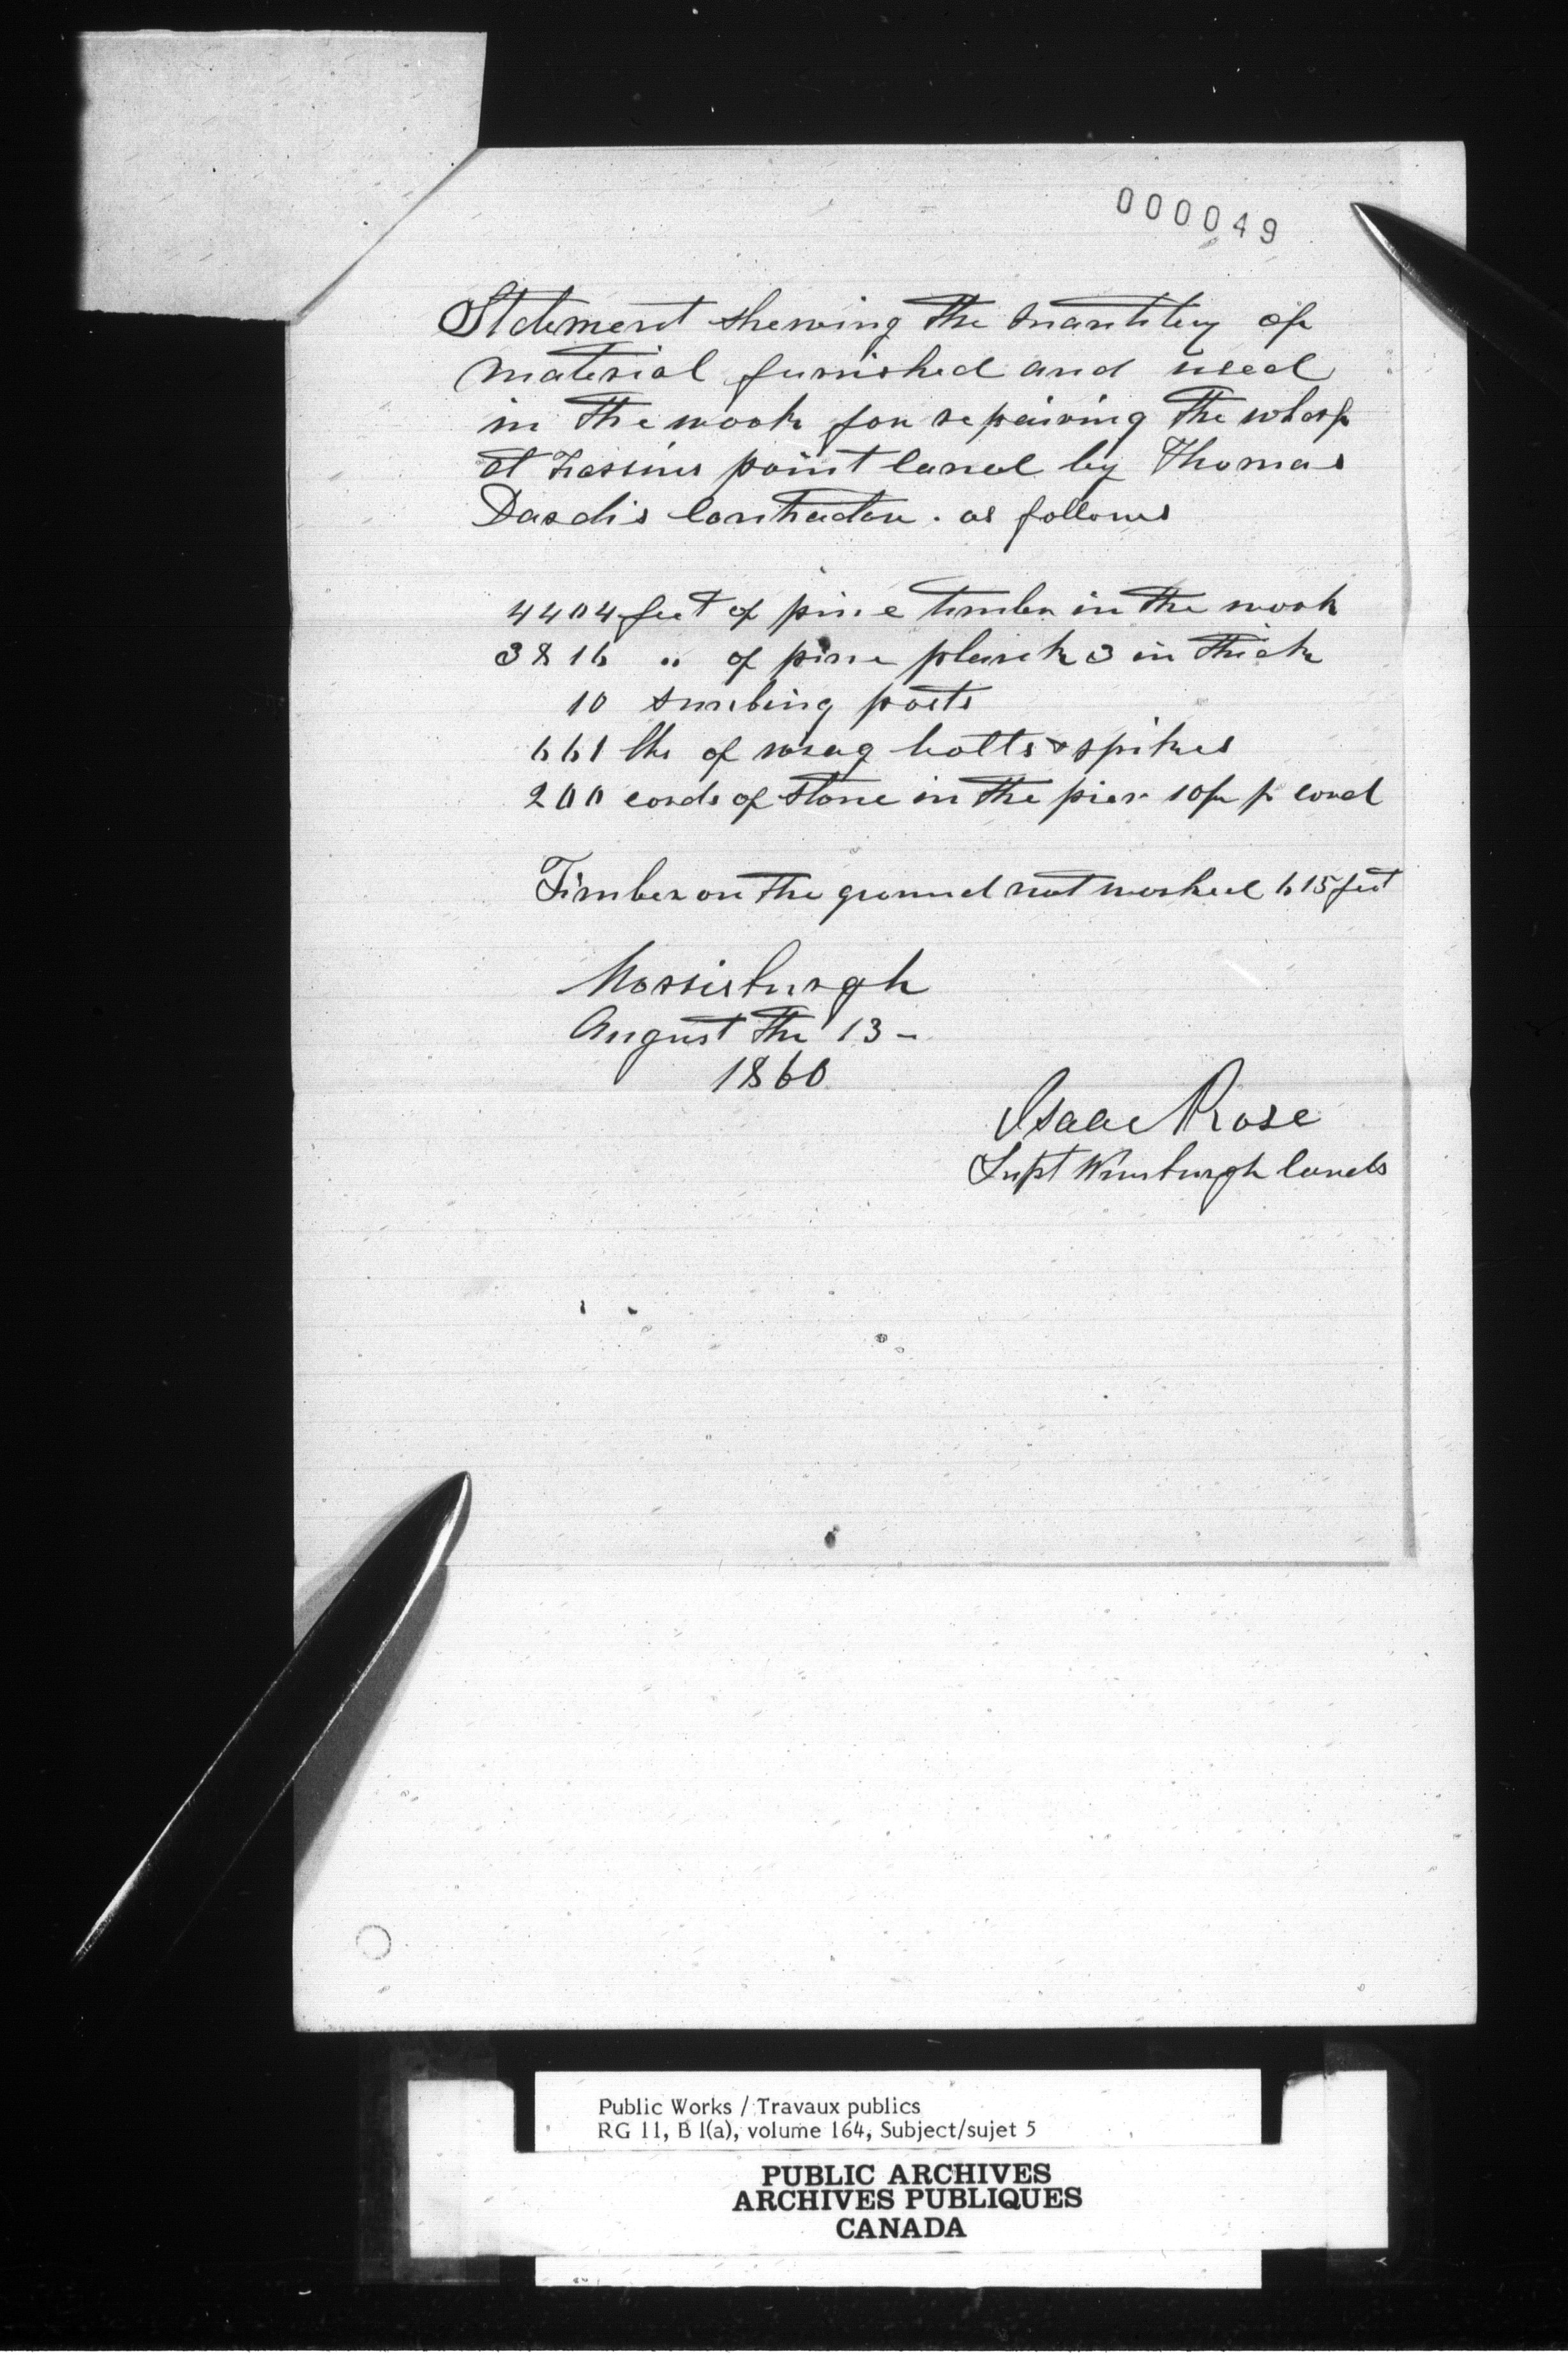 000049
Statement shewing the quantity of
material furnished and used
in the work for repairing the wharf
at Farrens point canal by Thomas
Dardis Contractor. as follows
4404 feet of pine timber in the work
3816 " of pine plank 3 in thick
10 snubing posts
661 lbs of wrag bolts & spikes
200 cords of stone in the pier 10/ p cord
Timber on the ground not worked 615 feet
Morrisburgh
August the 13 -
1860
Isaac Rose
Supt Wmsburgh Canals
Public Works / Travaux publics
RG 11, B 1(a), volume 164, Subject/sujet 5
PUBLIC ARCHIVES
ARCHIVES PUBLIQUES
CANADA